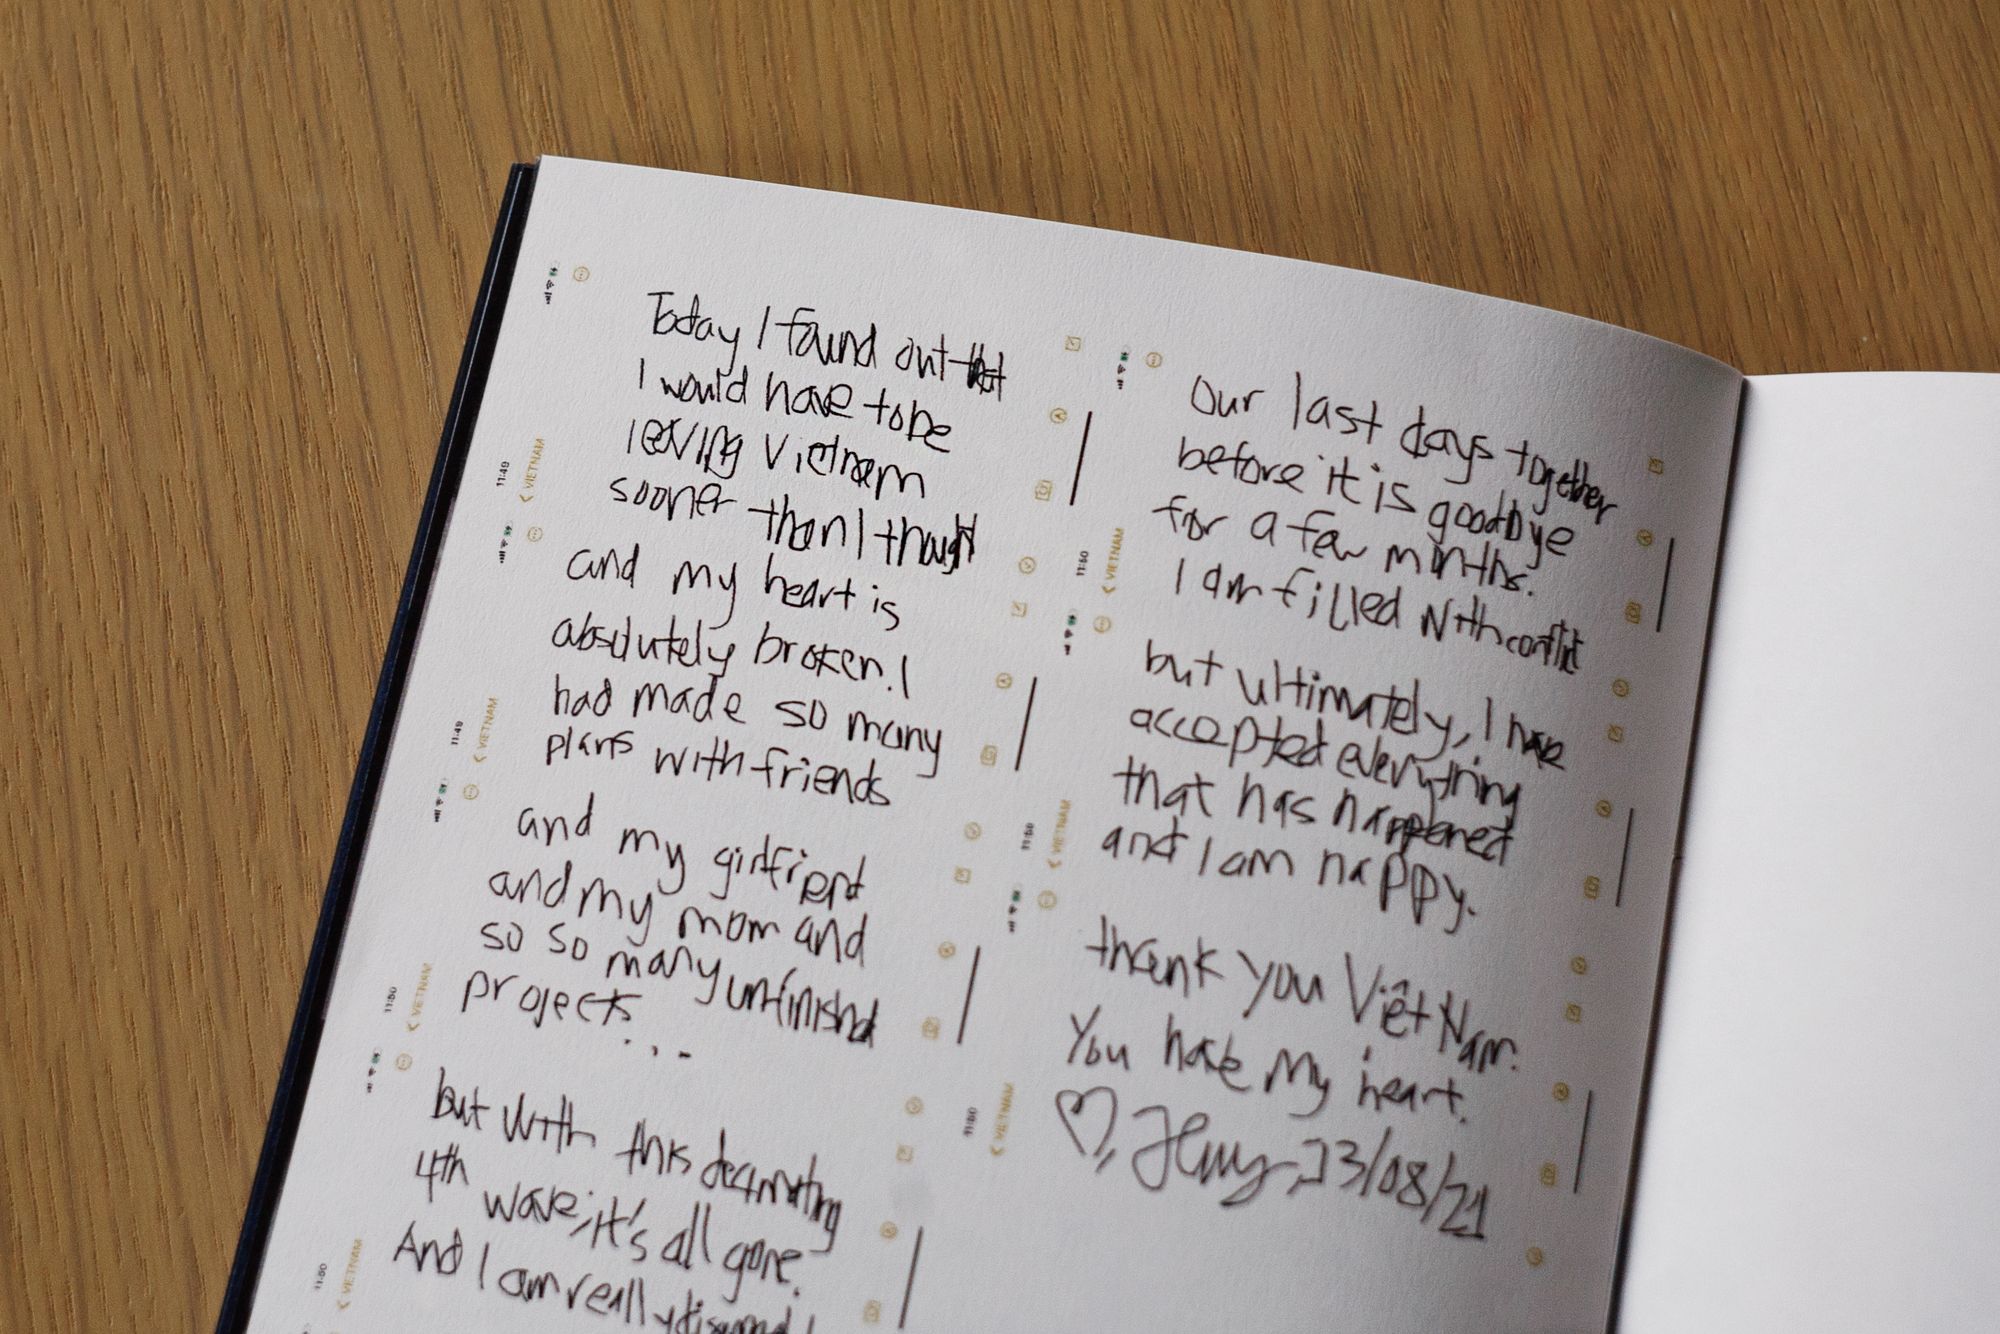 Today I found out that
I would have to be
leaving Vietnam
sooner than I thought
and my heart is
absolutely broken. I
had made so many
plans with friends
and my girlfriend
and my mom and
so so many unfinished
projects...
but with this decimating
4th wave, it's all gone.
And I am really
Our last days together
before it is goodbye
for a few months.
I am filled with conflict
but ultimately, I have
accepted everything
that has happened
and I am happy.
thank you Việt Nam.
You have my heart.
♡, 23/08/21
11:49
< VIETNAM
11:49
< VIETNAM
11:50
< VIETNAM
11:50
< VIETNAM
11:50
< VIETNAM
11:50
< VIETNAM
11:50
< VIETNAM